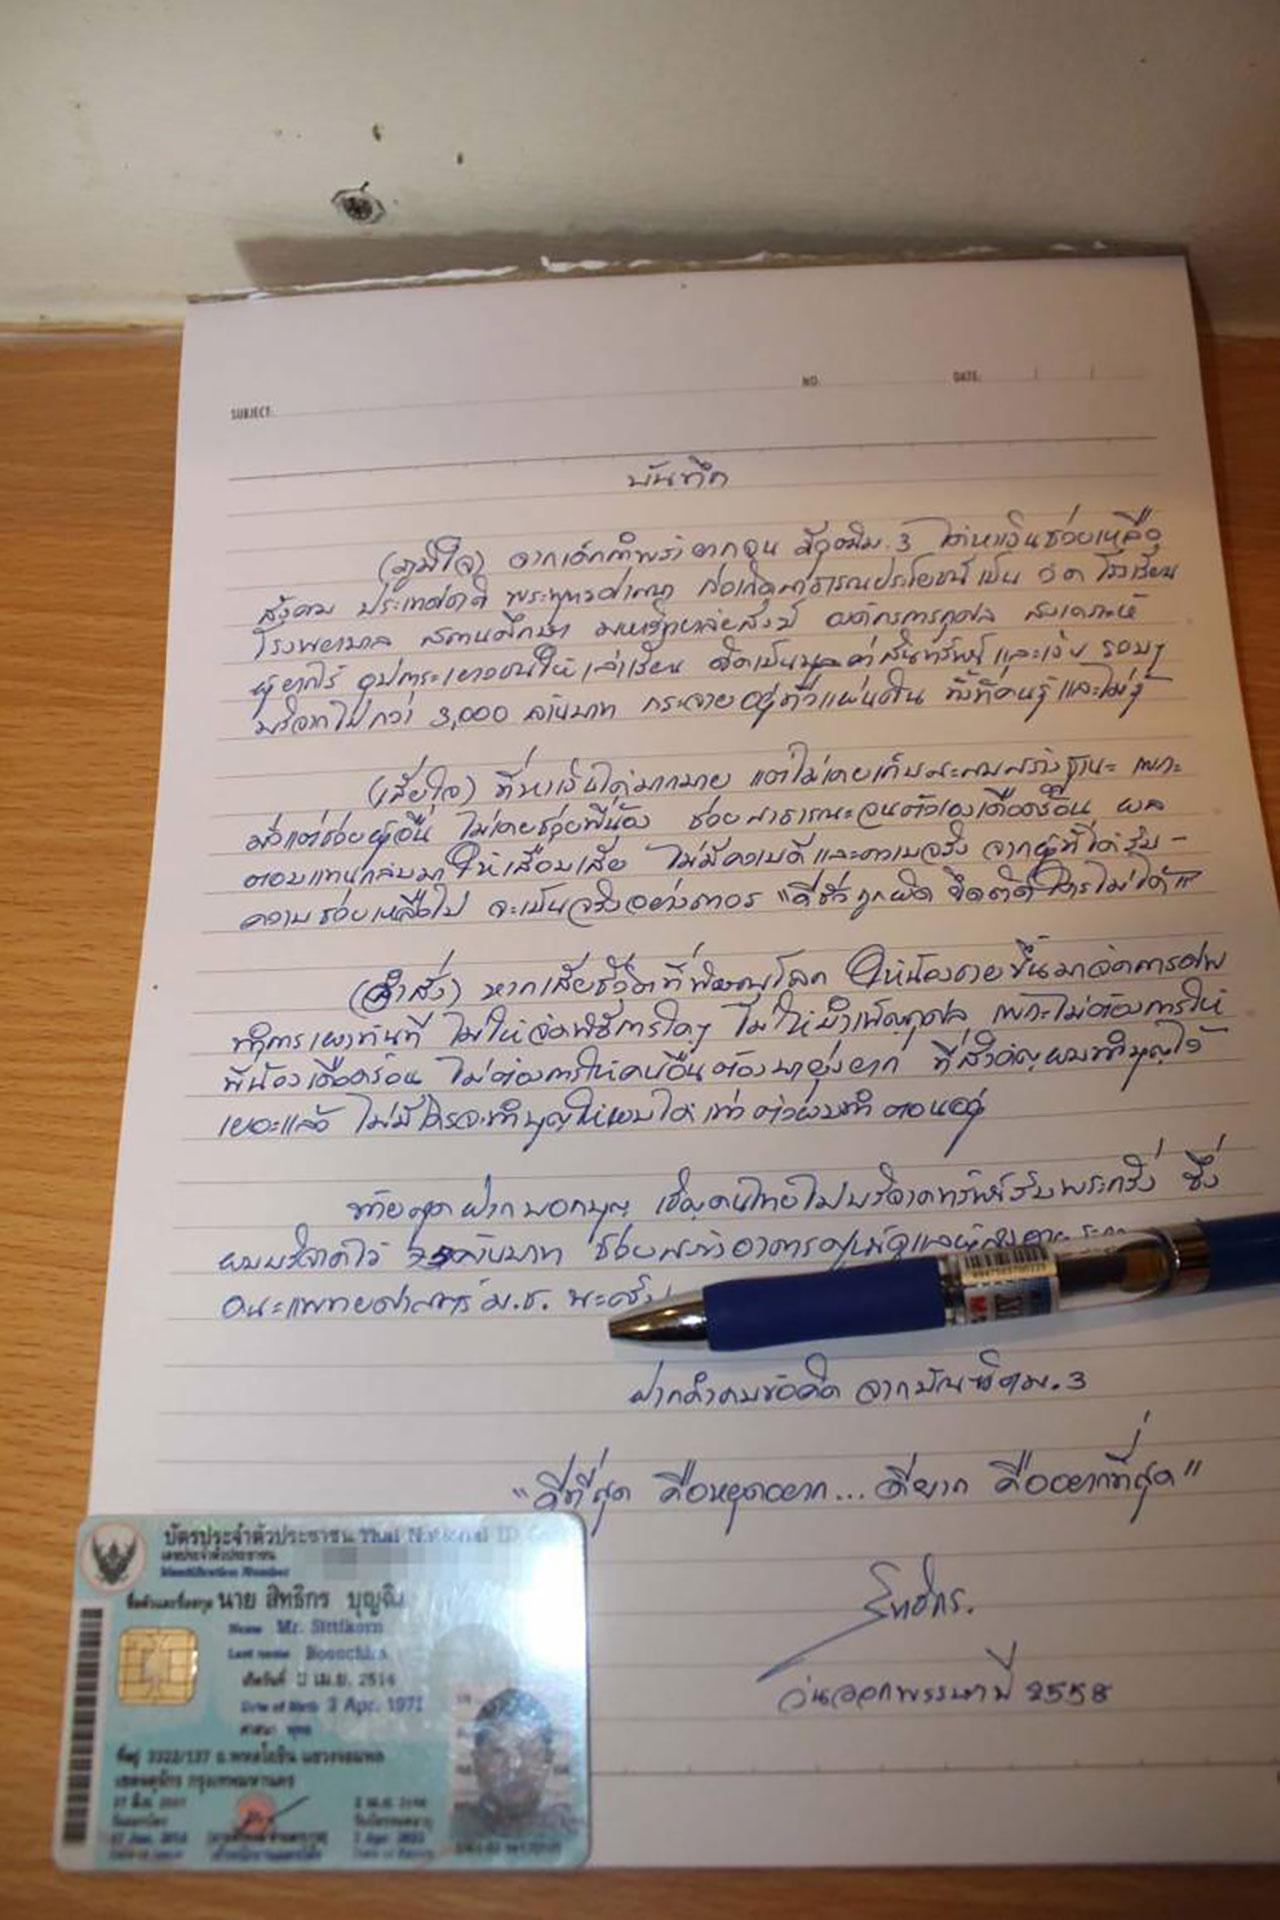 SUBJECT:
NO.
DATE:
บันทึก
(ภูมิใจ) จากเด็กกำพร้ายากจน มีวุฒิม.3 ได้หาเงินช่วยเหลือ
สังคม ประเทศชาติ พระพุทธศาสนา ก่อเกิดสาธารณประโยชน์เป็น วัด โรงเรียน
โรงพยาบาล สถานศึกษา มหาวิทยาลัยสงฆ์ องค์กรการกุศล สงเคราะห์
ผู้ยากไร้ อุปการะเยาวชนให้เล่าเรียน คิดเป็นมูลค่าสินทรัพย์และเงิน รวมๆ
บริจาคไปกว่า 3,000 ล้านบาท กระจายอยู่ทั่วแผ่นดิน ทั้งที่คนรู้และไม่รู้
(เสียใจ) ที่หาเงินได้มากมาย แต่ไม่เคยเก็บสะสมสร้างฐานะ เพราะ
มัวแต่ช่วยผู้อื่น ไม่เคยช่วยพี่น้อง ช่วยสาธารณะจนตัวเองเดือดร้อน ผล
ตอบแทนกลับมาให้เสื่อมเสีย ไม่มีความดีและความจริง จากผู้ที่ได้รับ-
ความช่วยเหลือไป จะเป็นจริงอย่างถาวร "ดีชั่วถูกผิด ยึดติดถาวรไม่ได้"
(คำสั่ง) หากเสียชีวิตที่พิษณุโลก ให้น้องชายขึ้นมาจัดการศพ
ทำการเผาทันที ไม่ให้จัดพิธีการใดๆ ไม่ให้บำเพ็ญกุศล เพราะไม่ต้องการให้
พี่น้องเดือดร้อน ไม่ต้องการให้คนอื่นต้องมายุ่งยาก ที่สำคัญผมทำบุญไว้
เยอะแล้ว ไม่มีใครจะทำบุญให้ผมได้เท่าตัวผมทำตอนอยู่
ท้ายสุดฝากบอกบุญ เชิญคนไทยไปบริจาคทรัพย์รับพระกริ่ง ซึ่ง
ผมบริจาคไว้ ล้านบาท ช่วยสร้างอาคารศูนย์ดูแลผู้สูงอายุ
คณะแพทยศาสตร์ ม.ช. นะครับ
ฝากคำคมข้อคิด จากบัณฑิตม.3
"ดีที่สุด คือหยุดอยาก... ดียาก คืออยากที่สุด"
สิทธิกร.
วันออกพรรษาปี 2558
บัตรประจำตัวประชาชน Thai National ID Card
เลขประจำตัวประชาชน
Identification Number
ชื่อตัวและชื่อสกุล นาย สิทธิกร บุญฉิม
Name Mr. Sittikorn
Last name
เกิดวันที่ 3 เม.ย. 2514
Date of Birth 3 Apr. 1971
ศาสนา พุทธ
ที่อยู่ 3322/137 ถ.พหลโยธิน แขวงจอมพล
เขตจตุจักร กรุงเทพมหานคร